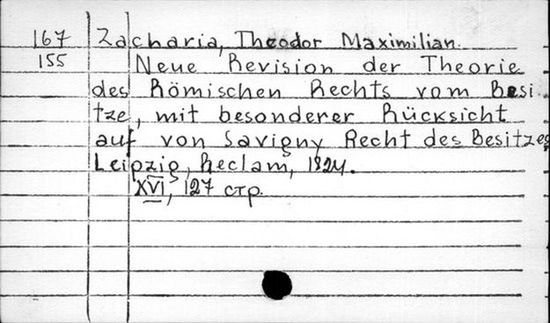 167 Zacharia, Theodor Maximilian.
155 Neue Revision der Theorie
des Römischen Rechts vom Besi
tze, mit besonderer Rücksicht
auf von Savigny Recht des Besitzes
Leipzig, Reclam, 1824.
XVI, 127 стр.